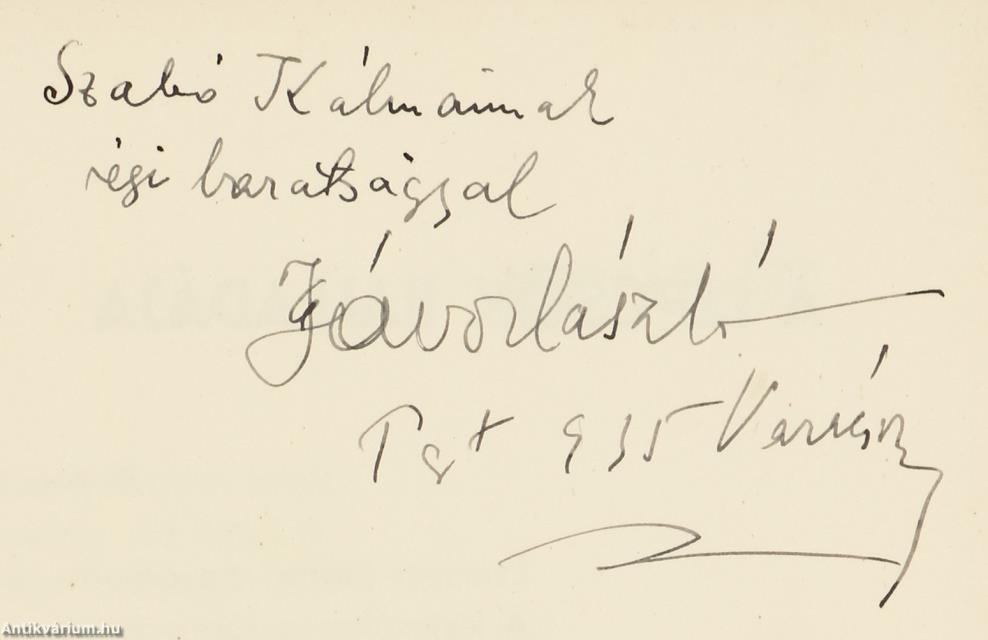 Szabó Kálmánnak
régi barátsággal
Jávor László
Pest 935
Antikvárium.hu